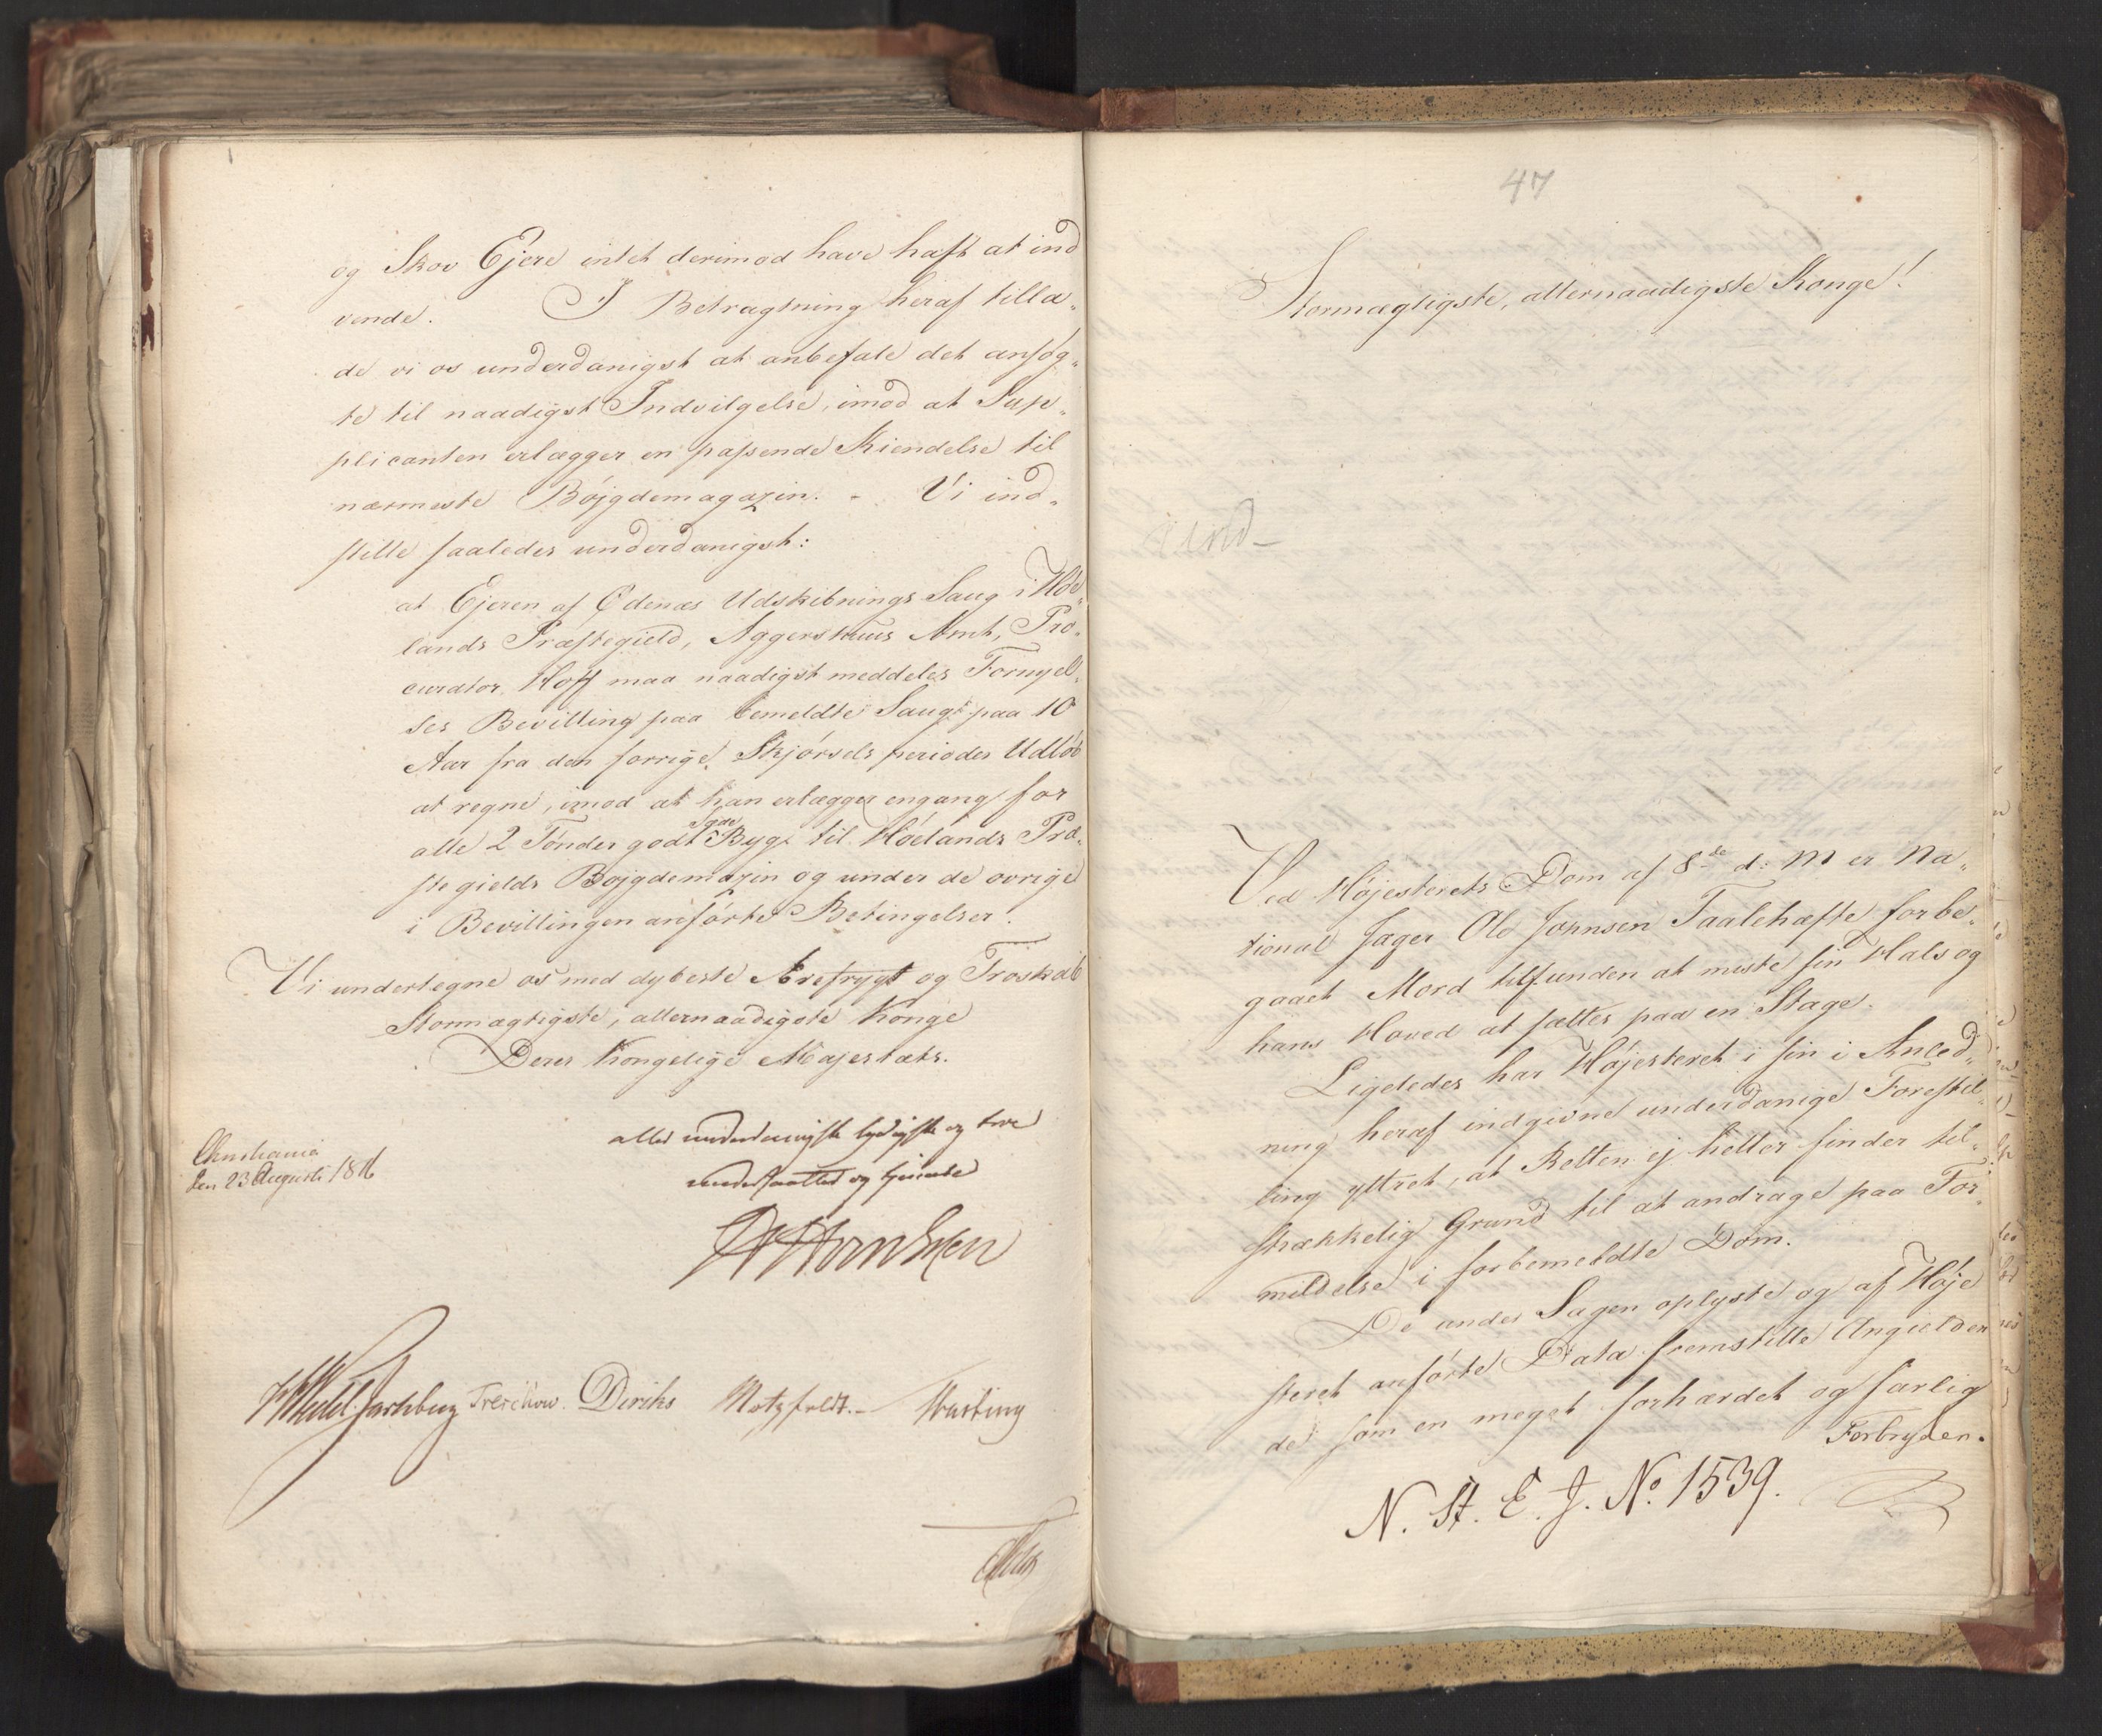 og Skov Ejere intet derimod have haft at ind
vende. I Betragtning heraf tilla„
de vi os underdanigst at anbefale det ansøg„
te til naadigst Indvilgelse, imod at Sup„
plicanten erlægger en passende Kiendelse til
nærmeste Bøjgdemagazin. - Vi ind„
stille saaledes underdanigst:
at Ejeren af Edenæs Udskibnings Saug i Høe„
lands Præstegield, Aggershuus Amt, Pro„
curator Hoff maa naadigst meddeles Fornyel„
ses Bevilling paa bemeldte Saug paa 10
Aar fra den forrige Skjørsels periodes Udløb
at regne, imod at han erlægger engang for
alle 2 Tønder godt Byg til Høelands Præ„
stegields Bøjgdemazin og under de øvrige
i Bevillingen anførte Betingelser.
Vi undertegne os med dybeste Ærefrygt og Troskab
Stormægtigste, allernaadigste Konge
Deres Kongelige Majestæts.
aller underdanigste lydigste og troe
undersaatter og tjenere
Christiania
den 23 Augusti 1816
Wedel Jarlsberg Treschow. Diriks Motzfeldt.-
47
Stormægtigste, allernaadigste Konge!
Ved Højesterets Dom af 8de d: M er Na„
tional Jæger Ole Johnsen Taalehæfte for be„
gaaet Mord tilfunden at miste sin Hals og
hans Hoved at sættes paa en Stage.
Ligeledes har Højesteret i sin i Anled„
ning heraf indgivne underdanige Forestil„
ling yttret, at Retten ej heller finder til„
strækkelig Grund til at andrage paa For„
mildelse i forbemeldte Dom.
De under Sagen oplyste og af Høje
steret anførte Data fremstille Angielden
de som en meget forhærdet og farlig
Forbryder.
N. St. E. J. No. 1539.